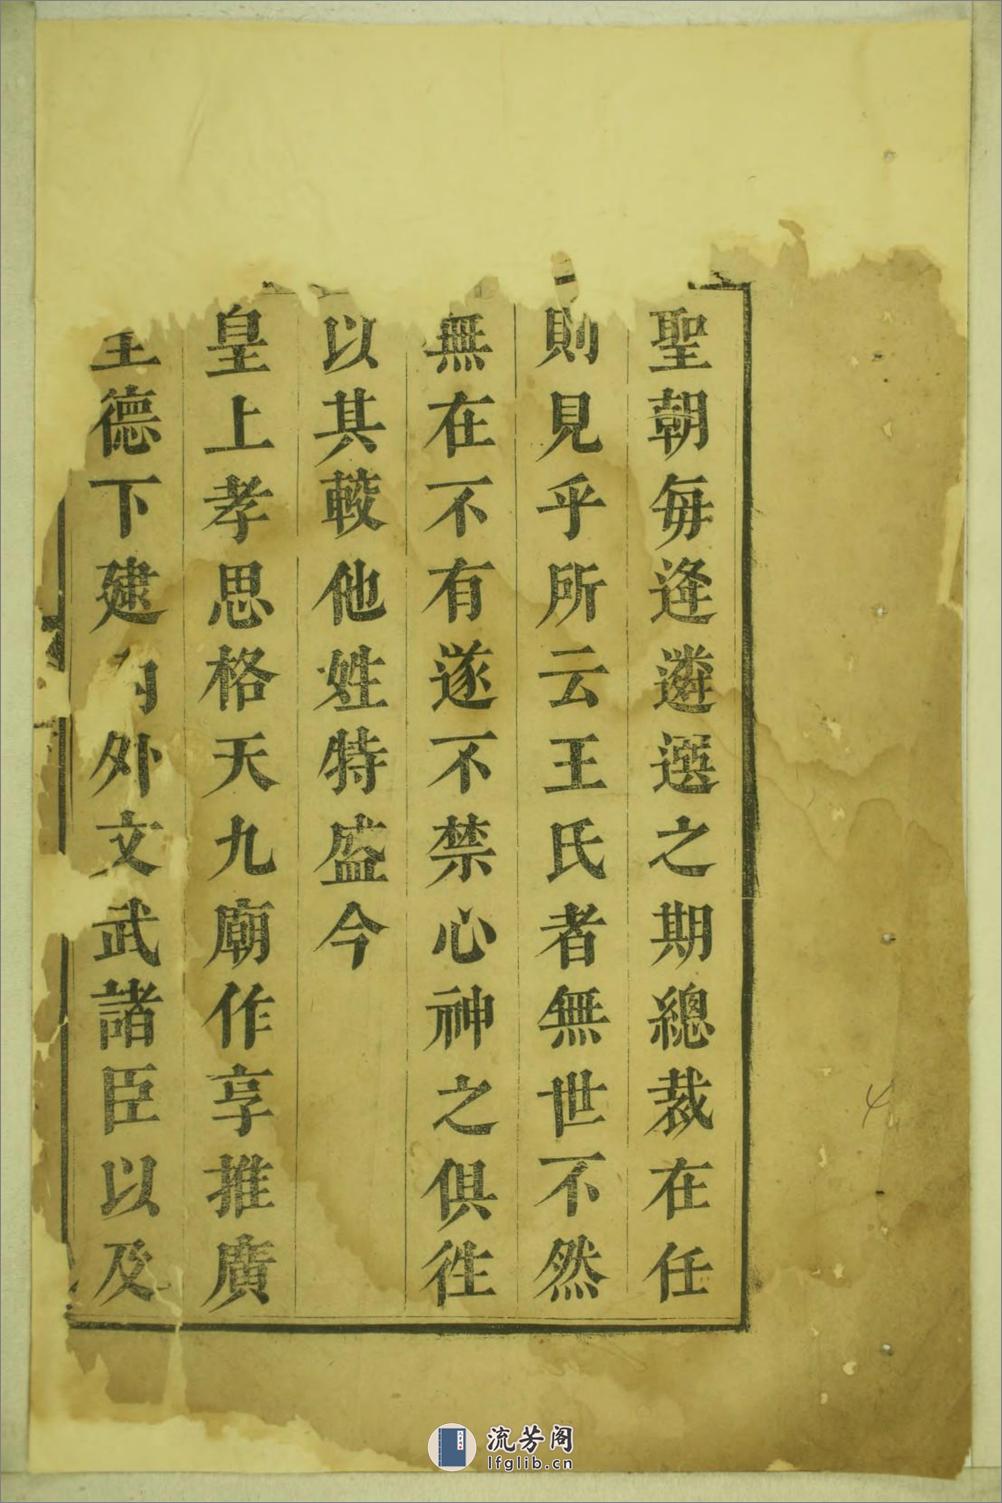 聖朝每逢遴選之期總裁在任
則見乎所云王氏者無世不然
無在不有遂不禁心神之俱徃
以其較他姓特盛今
皇上孝思格天九廟作享推廣
德下建内外文武諸臣以及
流芳阁
lfglib.cn